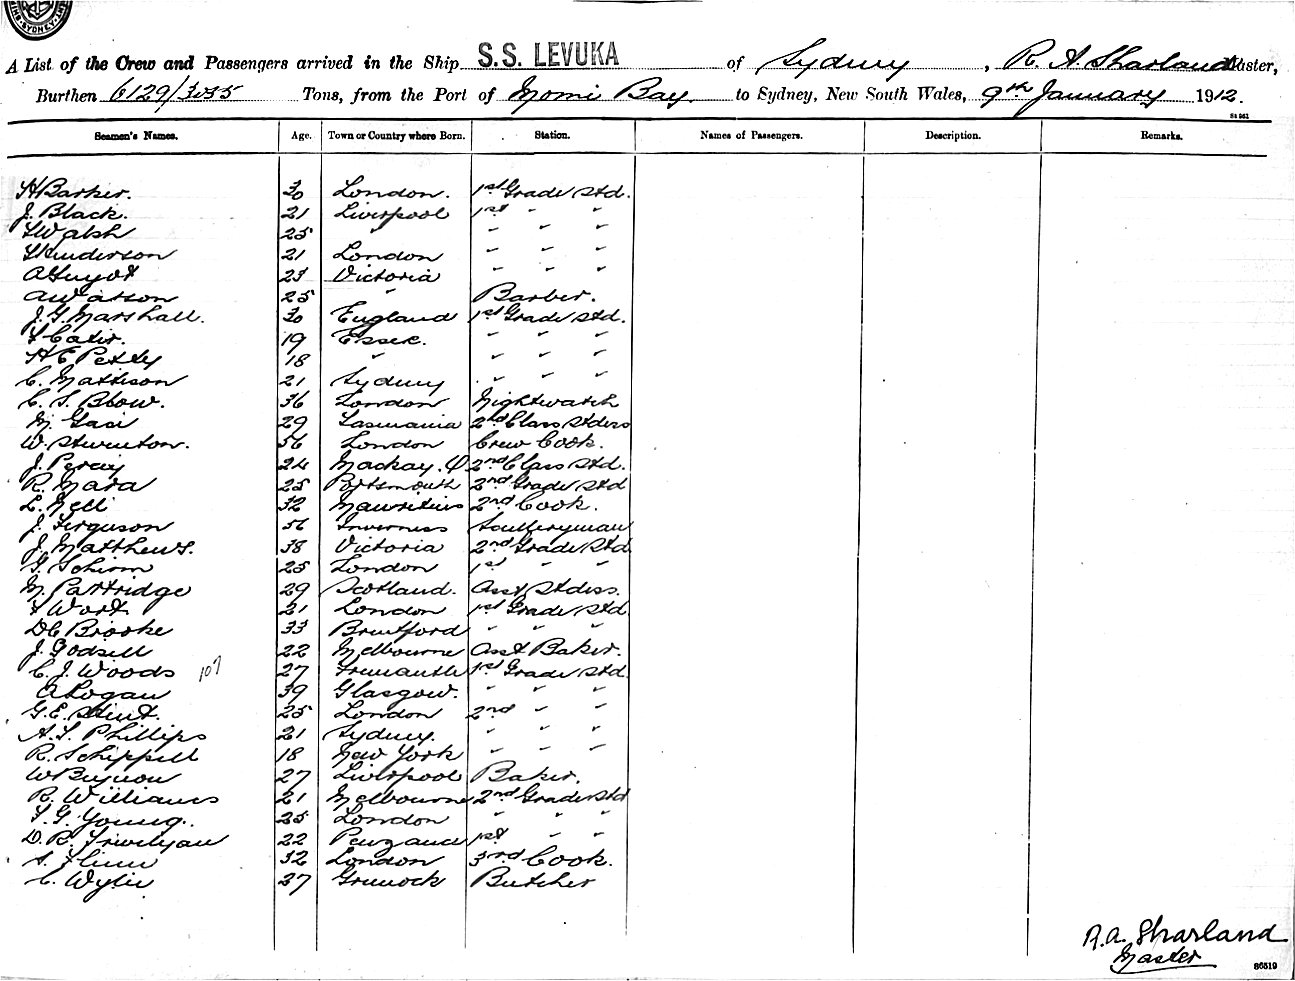 SYDNEY
A List of the Crew and Passengers arrived in the Ship S.S. LEVUKA of Sydney, R. A. Sharland Master,
Burthen 6129/3035 Tons, from the Port of Momi Bay to Sydney, New South Wales, 9th January 1912.
St 961
Seamen's Names. Age. Town or Country where Born. Station. Names of Passengers. Description. Remarks.
H Barker. 30 London. 1st Grade Std.
J. Black. 21 Liverpool 1st " "
Walsh 25 " " " "
Henderson 21 London " " "
A Guyot 23 Victoria " " "
A Watson 25 " Barber.
J. G. Marshall. 30 England 1st Grade Std.
Cater. 19 Essex. " " "
H E Petty 18 " " " "
C. Mattison 21 Sydney " " "
C. S. Blow. 36 London Nightwatch
M. Gasi 29 Tasmania 2nd Class Stdess
W. Stweeton. 56 London Crew Cook.
J. Percy 24 Mackay. Q 2nd Class Std.
R. Mara 25 Portsmouth 2nd Grade Std
L. Nell 32 Mauritius 2nd Cook.
J. Ferguson 56 Inverness Sculleryman
J. Matthews. 38 Victoria 2nd Grade Std
Schirm 25 London 1st " "
M. Partridge 29 Scotland. Asst Stdess.
Wort 21 London 1st Grade Std
D C Brooke 33 Brentford " " "
J. Godsell 22 Melbourne Asst Baker.
C. J. Woods 107 27 Fremantle 1st Grade Std
A Logan 39 Glasgow. " " "
G. E. Stent. 25 London 2nd " "
A. S. Phillips 21 Sydney. " " "
R. Schippell 18 New York " " "
W Beynon 27 Liverpool Baker.
R. Williams 21 Melbourne 2nd Grade Std
G. Young. 25 London " " "
D. R. Trivelyan 22 Penzance 1st " "
S. Flinn 32 London 3rd Cook.
C. Wylie 27 Greenock Butcher
R. A. Sharland
Master
86519